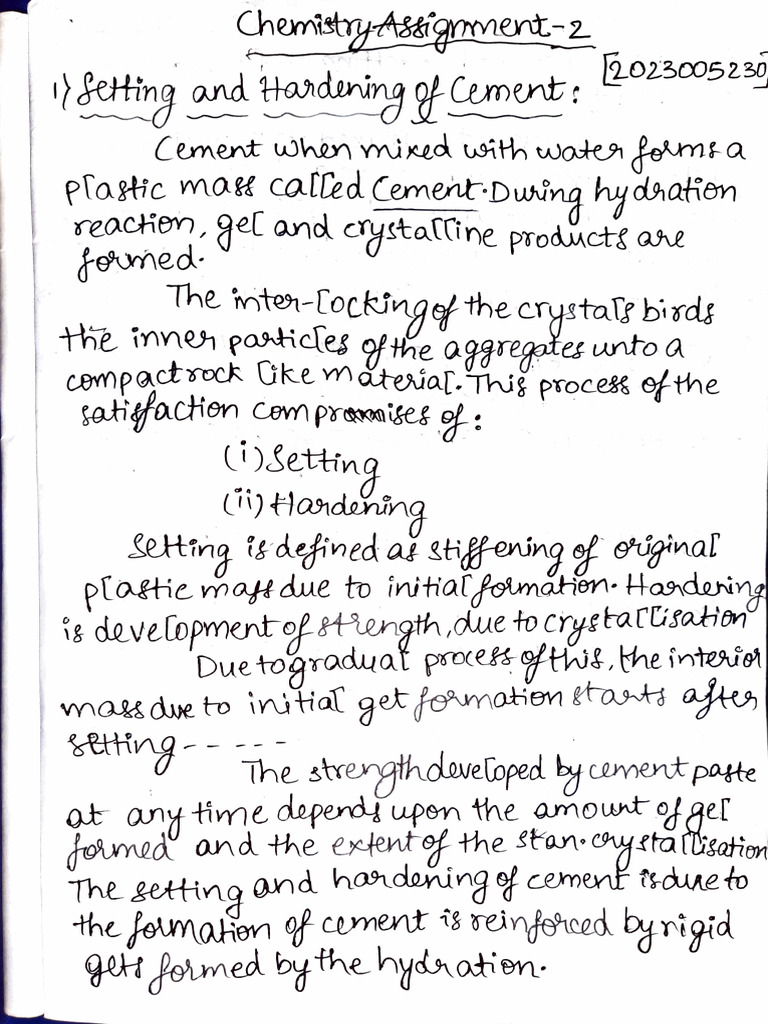 Chemistry Assignment-2
[2023005230]
1) Setting and Hardening of Cement:
Cement when mixed with water forms a
plastic mass called Cement. During hydration
reaction, gel and crystalline products are
formed.
The inter-locking of the crystals birds
the inner particles of the aggregates unto a
compact rock like material. This process of the
satisfaction compromises of:
(i) Setting
(ii) Hardening
Setting is defined as stiffening of original
plastic mass due to initial formation. Hardening
is development of strength, due to crystallisation
Due to gradual process of this, the interior
mass due to initial get formation starts after
setting - - - - -
The strength developed by cement paste
at any time depends upon the amount of gel
formed and the extent of the stan. crystallisation
The setting and hardening of cement is due to
the formation of cement is reinforced by rigid
gets formed by the hydration.